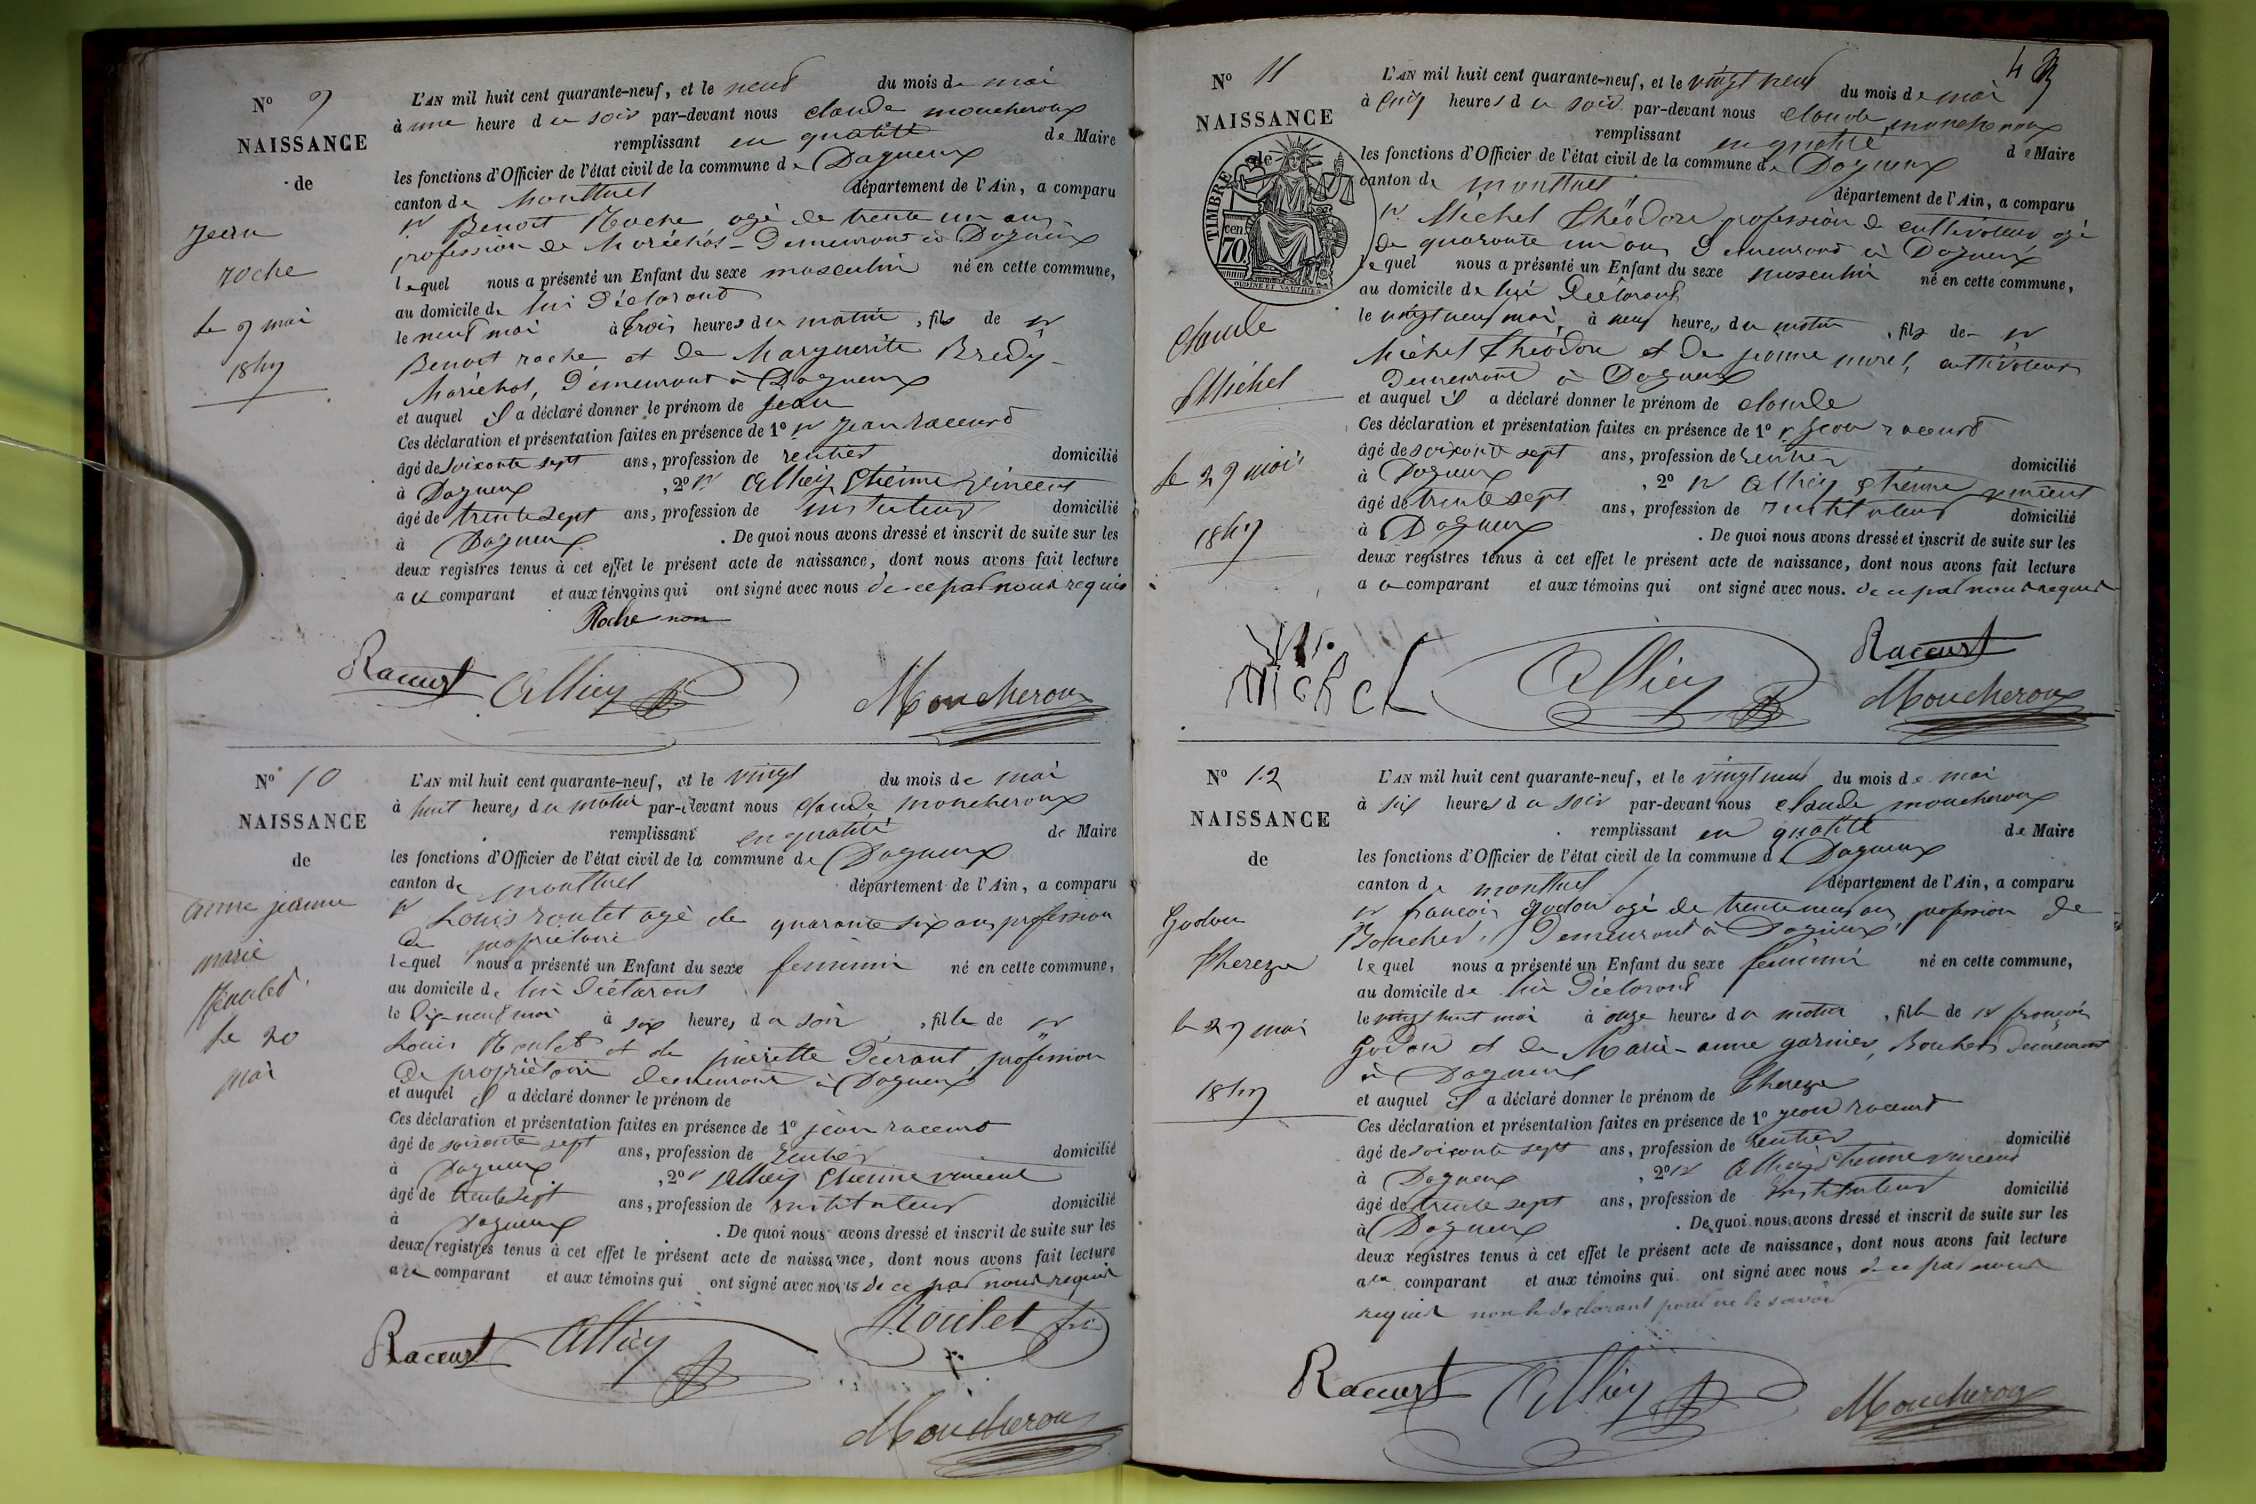 N° 9
NAISSANCE
de
Jean
roche
le 9 mai
1849
L'AN mil huit cent quarante-neuf, et le neuf du mois de mai
à une heure du soir par-devant nous claude moucheroux
remplissant en qualité de Maire
les fonctions d'Officier de l'état civil de la commune de Dagneux
canton de Montluel département de l'Ain, a comparu
Benoit Roche agé de trente un ans
profession de Maréchal - Demeurant à Dagneux
lequel nous a présenté un Enfant du sexe masculin né en cette commune,
au domicile de lui Déclarant
le neuf mai à trois heures du matin, fils de
Benoit roche et de Marguerite Bredy
Maréchal, Demeurant à Dagneux
et auquel il a déclaré donner le prénom de Jean
Ces déclaration et présentation faites en présence de 1° Jean Raccurt
âgé de soixante sept ans, profession de rentier domicilié
à Dagneux, 2° Alliey Etienne Vincent
âgé de trente sept ans, profession de instituteur domicilié
à Dagneux. De quoi nous avons dressé et inscrit de suite sur les
deux registres tenus à cet effet le présent acte de naissance, dont nous avons fait lecture
au comparant et aux témoins qui ont signé avec nous de ce par nous requis
Roche non
Raccurt Alliey Moucheroux
N° 10
NAISSANCE
de
anne jeanne
marie
Roulet
le 20
mai
L'AN mil huit cent quarante-neuf, et le vingt du mois de mai
à huit heures du matin par-devant nous claude moucheroux
remplissant en qualité de Maire
les fonctions d'Officier de l'état civil de la commune de Dagneux
canton de montluel département de l'Ain, a comparu
Louis roulet agé de quarante six ans profession
de propriétaire
lequel nous a présenté un Enfant du sexe feminin né en cette commune,
au domicile de lui Déclarant
le Dix-neuf mai à six heures du soir, fille de
Louis Roulet et de pierrette profession
De propriétaire demeurant à Dagneux
et auquel il a déclaré donner le prénom de
Ces déclaration et présentation faites en présence de 1° jean raccurt
âgé de soixante sept ans, profession de Rentier domicilié
à Dagneux, 2° Alliey Etienne vincent
âgé de trente sept ans, profession de instituteur domicilié
à Dagneux. De quoi nous avons dressé et inscrit de suite sur les
deux registres tenus à cet effet le présent acte de naissance, dont nous avons fait lecture
au comparant et aux témoins qui ont signé avec nous de ce par nous requis
Raccurt Alliey Roulet
Moucheroux
N° 11
NAISSANCE
de
TIMBRE
70 cen
Claude
Michel
le 29 mai
1849
L'AN mil huit cent quarante-neuf, et le vingt neuf du mois de mai
à cinq heures du soir par-devant nous claude moucheroux
remplissant en qualité de Maire
les fonctions d'Officier de l'état civil de la commune de Dagneux
canton de montluel département de l'Ain, a comparu
Michel Théodore profession de cultivateur agé
de quarante un ans Demeurant à Dagneux
lequel nous a présenté un Enfant du sexe masculin né en cette commune,
au domicile de lui Déclarant
le vingt neuf mai, à neuf heures du matin, fils de
Michel Théodore et De jeanne morel, cultivateur
Demeurant à Dagneux
et auquel il a déclaré donner le prénom de claude
Ces déclaration et présentation faites en présence de 1° Jean raccurt
âgé de soixante sept ans, profession de rentier domicilié
à Dagneux, 2° Alliey etienne vincent
âgé de trente sept ans, profession de Instituteur domicilié
à Dagneux. De quoi nous avons dressé et inscrit de suite sur les
deux registres tenus à cet effet le présent acte de naissance, dont nous avons fait lecture
au comparant et aux témoins qui ont signé avec nous. de ce par nous requis
Michel Alliey Raccurt
Moucheroux
N° 12
NAISSANCE
de
Godon
Thereze
le 29 mai
1849
L'AN mil huit cent quarante-neuf, et le vingt neuf du mois de mai
à six heures du soir par-devant nous claude moucheroux
remplissant en qualité de Maire
les fonctions d'Officier de l'état civil de la commune de Dagneux
canton de montluel département de l'Ain, a comparu
françois godon agé de trente neuf ans, profession de
Boucher, Demeurant à Dagneux
lequel nous a présenté un Enfant du sexe feminin né en cette commune,
au domicile de lui Déclarant
le vingt huit mai à onze heures du matin, fille de françois
Godon et de Marie-anne garnier, Boucher Demeurant
à Dagneux
et auquel il a déclaré donner le prénom de Thereze
Ces déclaration et présentation faites en présence de 1° jean raccurt
âgé de soixante sept ans, profession de rentier domicilié
à Dagneux, 2° Alliey Etienne vincent
âgé de trente sept ans, profession de instituteur domicilié
à Dagneux. De quoi nous avons dressé et inscrit de suite sur les
deux registres tenus à cet effet le présent acte de naissance, dont nous avons fait lecture
au comparant et aux témoins qui ont signé avec nous de ce par nous
requis non le declarant pour ne le savoir
Raccurt Alliey Moucheroux